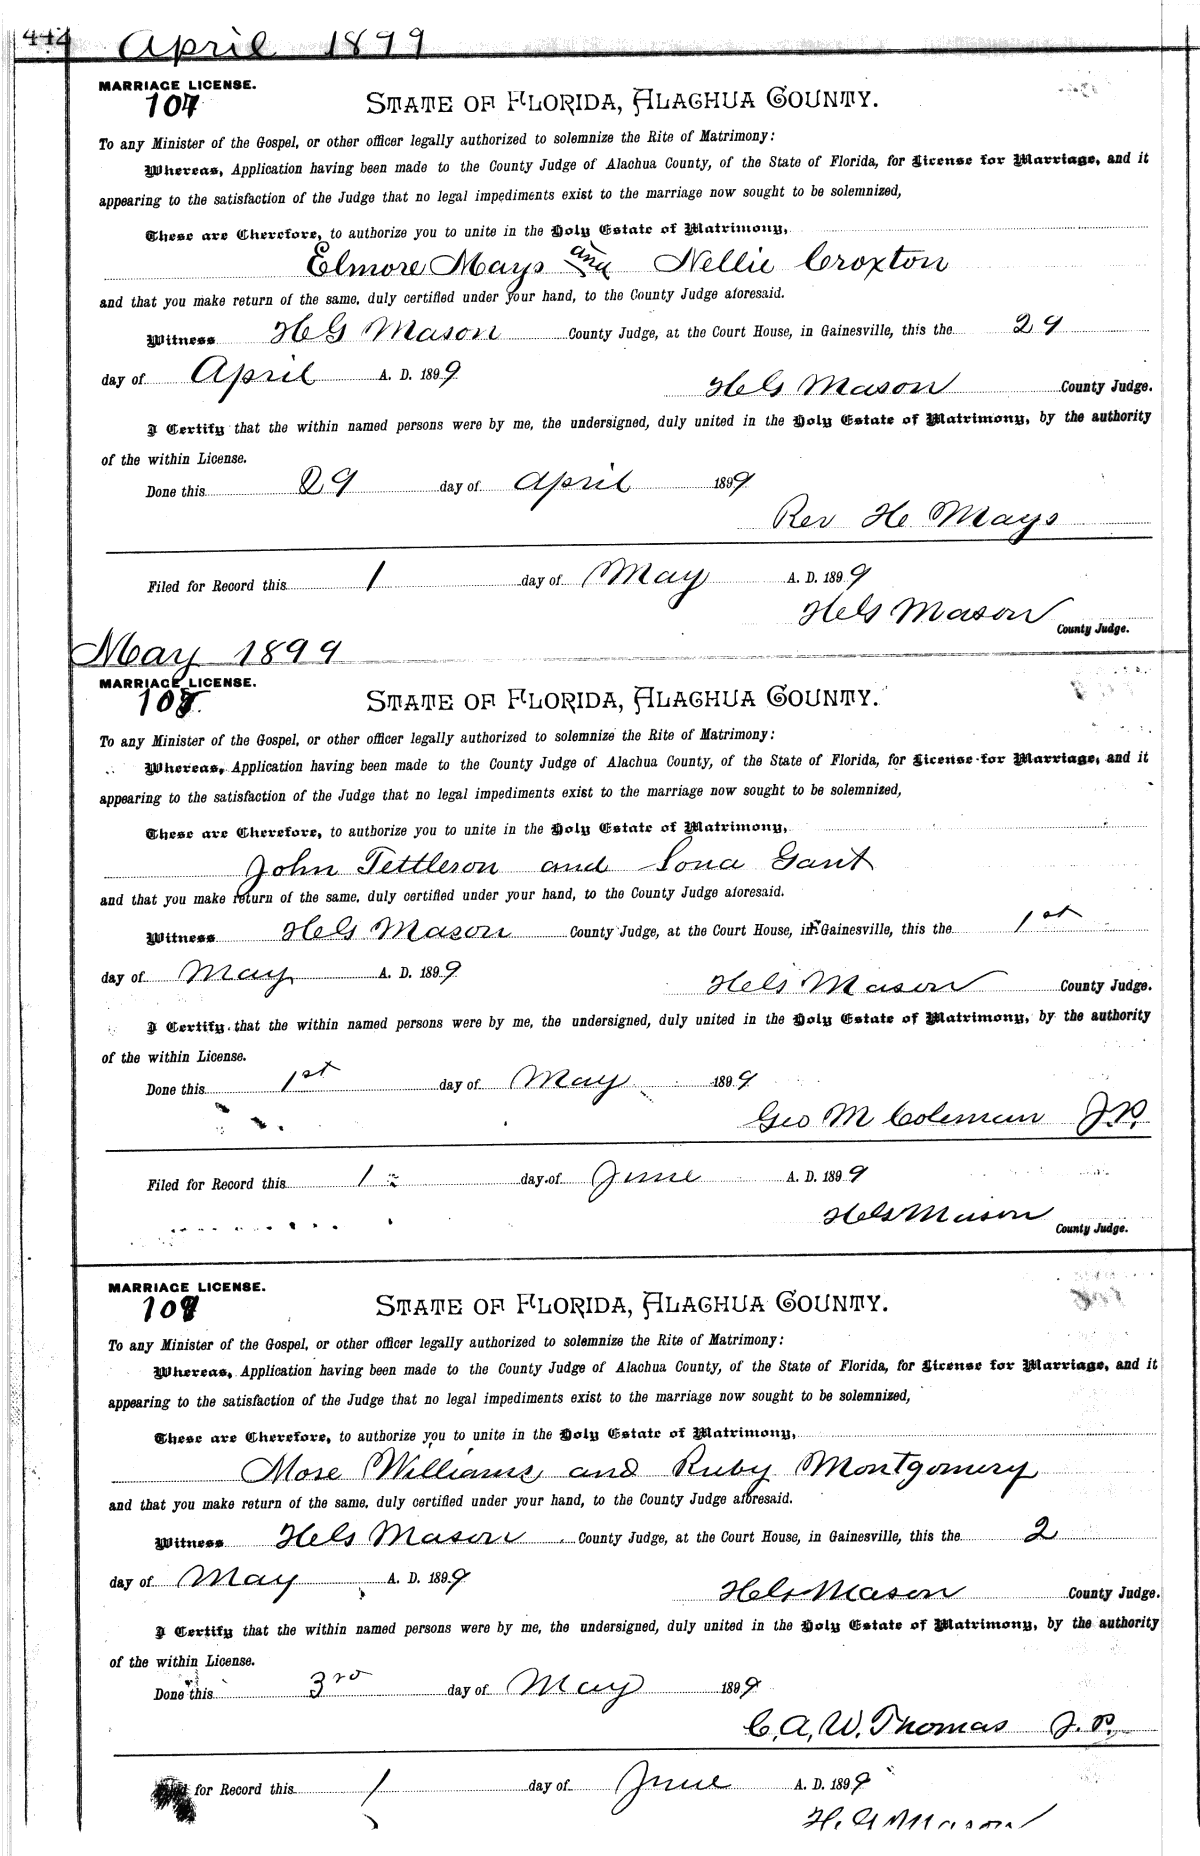 442 April 1899
MARRIAGE LICENSE.
107
STATE OF FLORIDA, ALACHUA COUNTY.
To any Minister of the Gospel, or other officer legally authorized to solemnize the Rite of Matrimony:
Whereas, Application having been made to the County Judge of Alachua County, of the State of Florida, for License for Marriage, and it
appearing to the satisfaction of the Judge that no legal impediments exist to the marriage now sought to be solemnized,
These are Therefore, to authorize you to unite in the Holy Estate of Matrimony,
Elmore Mays and Nellie Croxton
and that you make return of the same, duly certified under your hand, to the County Judge aforesaid.
Witness HG Mason County Judge, at the Court House, in Gainesville, this the 29
day of April A. D. 1899
HG Mason County Judge.
I Certify that the within named persons were by me, the undersigned, duly united in the Holy Estate of Matrimony, by the authority
of the within License.
Done this 29 day of April 1899
Rev H Mays
Filed for Record this 1 day of May A. D. 1899
HG Mason
County Judge.
May 1899
MARRIAGE LICENSE.
108
STATE OF FLORIDA, ALACHUA COUNTY.
To any Minister of the Gospel, or other officer legally authorized to solemnize the Rite of Matrimony:
Whereas, Application having been made to the County Judge of Alachua County, of the State of Florida, for License for Marriage, and it
appearing to the satisfaction of the Judge that no legal impediments exist to the marriage now sought to be solemnized,
These are Therefore, to authorize you to unite in the Holy Estate of Matrimony,
John Tettleson and Lona Gant
and that you make return of the same, duly certified under your hand, to the County Judge aforesaid.
Witness HG Mason County Judge, at the Court House, in Gainesville, this the 1st
day of May A. D. 1899
HG Mason County Judge.
I Certify that the within named persons were by me, the undersigned, duly united in the Holy Estate of Matrimony, by the authority
of the within License.
Done this 1st day of May 1899
Geo M Coleman J.P.
Filed for Record this 1 day of June A. D. 1899
HG Mason
County Judge.
MARRIAGE LICENSE.
109
STATE OF FLORIDA, ALACHUA COUNTY.
To any Minister of the Gospel, or other officer legally authorized to solemnize the Rite of Matrimony:
Whereas, Application having been made to the County Judge of Alachua County, of the State of Florida, for License for Marriage, and it
appearing to the satisfaction of the Judge that no legal impediments exist to the marriage now sought to be solemnized,
These are Therefore, to authorize you to unite in the Holy Estate of Matrimony,
Mose Williams and Ruby Montgomery
and that you make return of the same, duly certified under your hand, to the County Judge aforesaid.
Witness HG Mason County Judge, at the Court House, in Gainesville, this the 2
day of May A. D. 1899
HG Mason County Judge.
I Certify that the within named persons were by me, the undersigned, duly united in the Holy Estate of Matrimony, by the authority
of the within License.
Done this 3rd day of May 1899
C. A. W. Thomas J. P.
for Record this 1 day of June A. D. 1899
H. G Mason